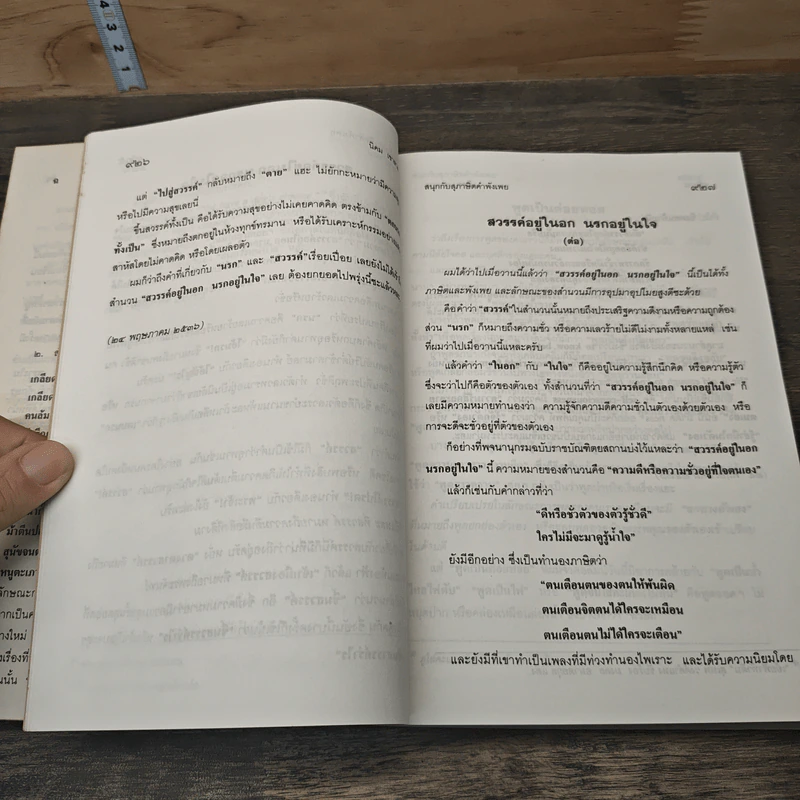 ๙๒๖
นิคม
แต่ "ไปสู่สวรรค์" กลับหมายถึง "ตาย" แฮะ ไม่ยักกะหมายว่ามีความ
หรือไปมีความสุขเลยนี่
ขึ้นสวรรค์ทั้งเป็น คือได้รับความสุขอย่างไม่เคยคาดคิด ตรงข้ามกับ
ทั้งเป็น" ซึ่งหมายถึงตกอยู่ในห้วงทุกข์ทรมาน หรือได้รับเคราะห์กรรมอย่าง
สาหัสโดยไม่คาดคิด หรือโดยเผลอตัว
ผมก็ว่าถึงคำที่เกี่ยวกับ "นรก" และ "สวรรค์" เรื่อยเปื่อย เลยยังไม่ได้
สำนวน "สวรรค์อยู่ในอก นรกอยู่ในใจ" เลย ต้องยกยอดไปพรุ่งนี้ซะแล้ว
(๒๔ พฤษภาคม ๒๕๓๖)
สนุกกับสุภาษิตคำพังเพย
๙๒๗
สวรรค์อยู่ในอก นรกอยู่ในใจ
(ต่อ)
ผมได้ว่าไปเมื่อวานนี้แล้วว่า "สวรรค์อยู่ในอก นรกอยู่ในใจ" นี้เป็นได้ทั้ง
ภาษิตและพังเพย และลักษณะของสำนวนมีการอุปมาอุปไมยสูงดีซะด้วย
คือคำว่า "สวรรค์" ในสำนวนนั้นหมายถึงประเสริฐความดีงามหรือความถูกต้อง
ส่วน "นรก" ก็หมายถึงความชั่ว หรือความเลวร้ายไม่ดีไม่งามทั้งหลายแหล่ เช่น
ที่ผมว่าไปเมื่อวานนี้แหละครับ
แล้วคำว่า "ในอก" กับ "ในใจ" ก็คืออยู่ในความรู้สึกนึกคิด หรือความรู้ตัว
ซึ่งจะว่าไปก็คือตัวของตัวเอง ทั้งสำนวนที่ว่า "สวรรค์อยู่ในอก นรกอยู่ในใจ" ก็
เลยมีความหมายทำนองว่า ความรู้จักความดีความชั่วในตัวเองด้วยตัวเอง หรือ
การจะดีจะชั่วอยู่ที่ตัวของตัวเอง
ก็อย่างที่พจนานุกรมฉบับราชบัณฑิตยสถานบ่งไว้แหละว่า "สวรรค์อยู่ในอก
นรกอยู่ในใจ" นี้ ความหมายของสำนวนคือ "ความดีหรือความชั่วอยู่ที่ใจตนเอง"
แล้วก็เช่นกับคำกล่าวที่ว่า
"ดีหรือชั่วตัวของตัวรู้ชั่วดี"
ใครไม่มีจะมาดูรู้น้ำใจ"
ยังมีอีกอย่าง ซึ่งเป็นทำนองภาษิตว่า
"ตนเตือนตนของตนให้พ้นผิด
ตนเตือนจิตตนได้ใครจะเหมือน
ตนเตือนตนไม่ได้ใครจะเตือน"
และยังมีที่เขาทำเป็นเพลงที่มีท่วงทำนองไพเราะ และได้รับความนิยมโดย